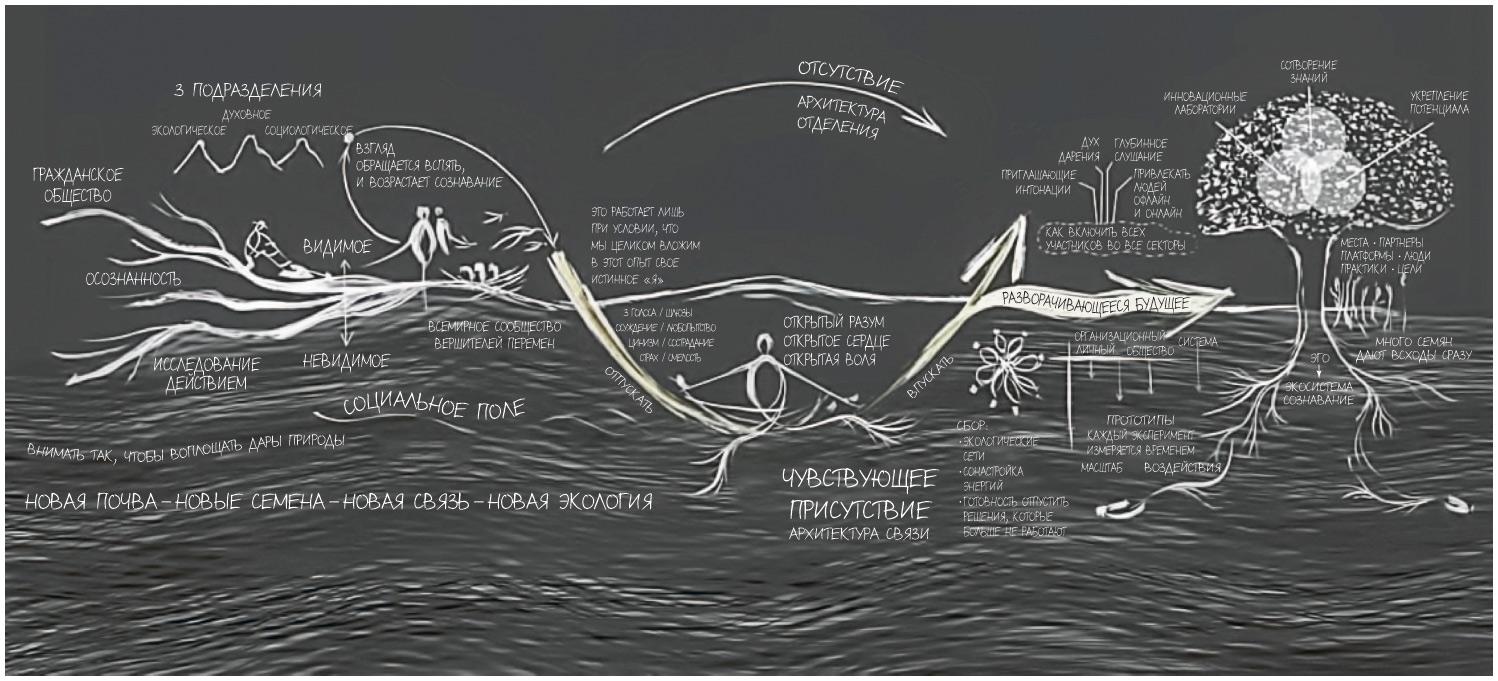 3 ПОДРАЗДЕЛЕНИЯ
ДУХОВНОЕ
ЭКОЛОГИЧЕСКОЕ
СОЦИОЛОГИЧЕСКОЕ
ВЗГЛЯД
ОБРАЩАЕТСЯ ВСПЯТЬ,
И ВОЗРАСТАЕТ СОЗНАВАНИЕ
ГРАЖДАНСКОЕ
ОБЩЕСТВО
ОСОЗНАННОСТЬ
ИССЛЕДОВАНИЕ
ДЕЙСТВИЕМ
ВИДИМОЕ
НЕВИДИМОЕ
ВСЕМИРНОЕ СООБЩЕСТВО
ВЕРШИТЕЛЕЙ ПЕРЕМЕН
СОЦИАЛЬНОЕ ПОЛЕ
ВНИМАТЬ ТАК, ЧТОБЫ ВОПЛОЩАТЬ ДАРЫ ПРИРОДЫ
НОВАЯ ПОЧВА – НОВЫЕ СЕМЕНА – НОВАЯ СВЯЗЬ – НОВАЯ ЭКОЛОГИЯ
ОТСУТСТВИЕ
АРХИТЕКТУРА
ОТДЕЛЕНИЯ
ЭТО РАБОТАЕТ ЛИШЬ
ПРИ УСЛОВИИ, ЧТО
МЫ ЦЕЛИКОМ ВЛОЖИМ
В ЭТОТ ОПЫТ СВОЕ
ИСТИННОЕ «Я»
3 ГОЛОСА / ШЛЮЗЫ
СУЖДЕНИЕ / ЛЮБОПЫТСТВО
ЦИНИЗМ / СОСТРАДАНИЕ
СТРАХ / СМЕЛОСТЬ
ОТПУСКАТЬ
ОТКРЫТЫЙ РАЗУМ
ОТКРЫТОЕ СЕРДЦЕ
ОТКРЫТАЯ ВОЛЯ
ВПУСКАТЬ
ЧУВСТВУЮЩЕЕ
ПРИСУТСТВИЕ
АРХИТЕКТУРА СВЯЗИ
ДУХ
ДАРЕНИЯ
ГЛУБИННОЕ
СЛУШАНИЕ
ПРИГЛАШАЮЩИЕ
ИНТОНАЦИИ
ПРИВЛЕКАТЬ
ЛЮДЕЙ
ОФЛАЙН
И ОНЛАЙН
КАК ВКЛЮЧИТЬ ВСЕХ
УЧАСТНИКОВ ВО ВСЕ СЕКТОРЫ
РАЗВОРАЧИВАЮЩЕЕСЯ БУДУЩЕЕ
ОРГАНИЗАЦИОННЫЙ
ЛИЧНЫЙ
ОБЩЕСТВО
СИСТЕМА
СБОР:
· ЭКОЛОГИЧЕСКИЕ
СЕТИ
· СОНАСТРОЙКА
ЭНЕРГИЙ
· ГОТОВНОСТЬ ОТПУСТИТЬ
РЕШЕНИЯ, КОТОРЫЕ
БОЛЬШЕ НЕ РАБОТАЮТ
ПРОТОТИПЫ
КАЖДЫЙ ЭКСПЕРИМЕНТ
ИЗМЕРЯЕТСЯ ВРЕМЕНЕМ
МАСШТАБ ВОЗДЕЙСТВИЯ
СОТВОРЕНИЕ
ЗНАНИЙ
ИННОВАЦИОННЫЕ
ЛАБОРАТОРИИ
УКРЕПЛЕНИЕ
ПОТЕНЦИАЛА
МЕСТА · ПАРТНЕРЫ
ПЛАТФОРМЫ · ЛЮДИ
ПРАКТИКИ · ЦЕЛИ
МНОГО СЕМЯН
ДАЮТ ВСХОДЫ СРАЗУ
ЭГО
ЭКОСИСТЕМА
СОЗНАВАНИЕ